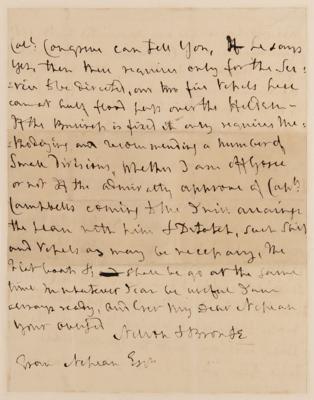 Capt. Congreve can tell You, If he says
Yes, then there requires only for the Ser-
vice to be directed, our two fire Vessels here
can at half flood pass over the
If the Business is fixed it only requires Me-
thodizing and recommending a number of
Small Divisions, whether I am off
or not If the admiralty approve of Capt.
Campbells coming to Me I will arrange
the plan with him & Detach, such Ships
and Vessels as may be necessary, the
shall be go at the same
time in whatever I can be useful I am
always ready, and Ever My Dear Nepean
Your obliged
Nelson & Bronte
Evan Nepean Esqr.